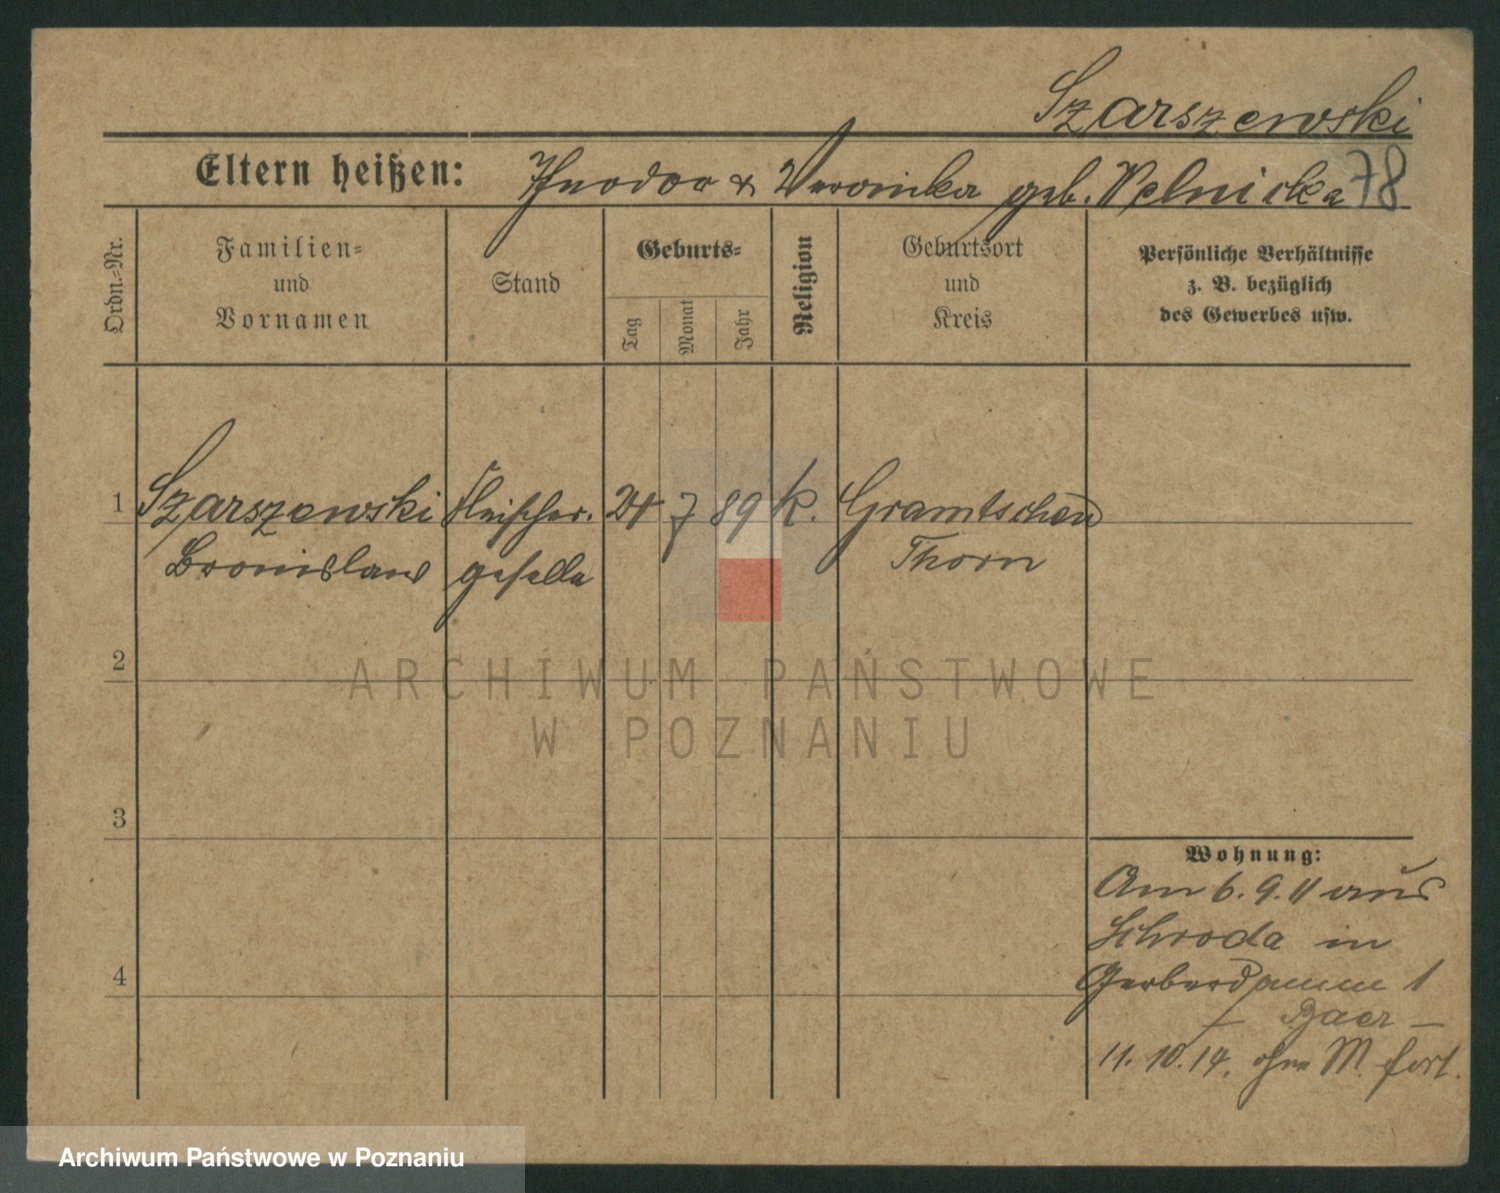 Szarszewski
Eltern heißen: Theodor & Veronika geb. Pelnicka 78
Ordn.-Nr.
Familien-
und
Vornamen
Stand
Geburts-
Tag
Monat
Jahr
Religion
Geburtsort
und
Kreis
Persönliche Verhältnisse
z. B. bezüglich
des Gewerbes usw.
1 Szarszewski Fleischer- 24 7 89 k. Gramtschen
Bronislaus geselle Thorn
2
ARCHIWUM PAŃSTWOWE
W POZNANIU
3
Wohnung:
Am 6.9.11 aus
Schroda in
4
Gerberdamm 1
– Baer –
11.10.14. ohne M. fort.
Archiwum Państwowe w Poznaniu